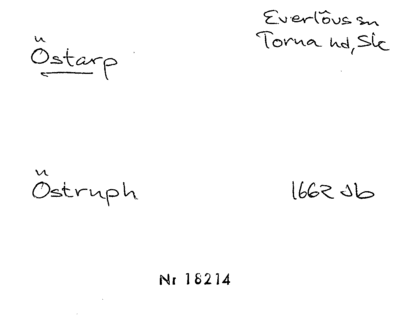 Everlövs sn
Ö Östarp
Torna hd, Sk
Östruph
1662 Jb
Nr 18214